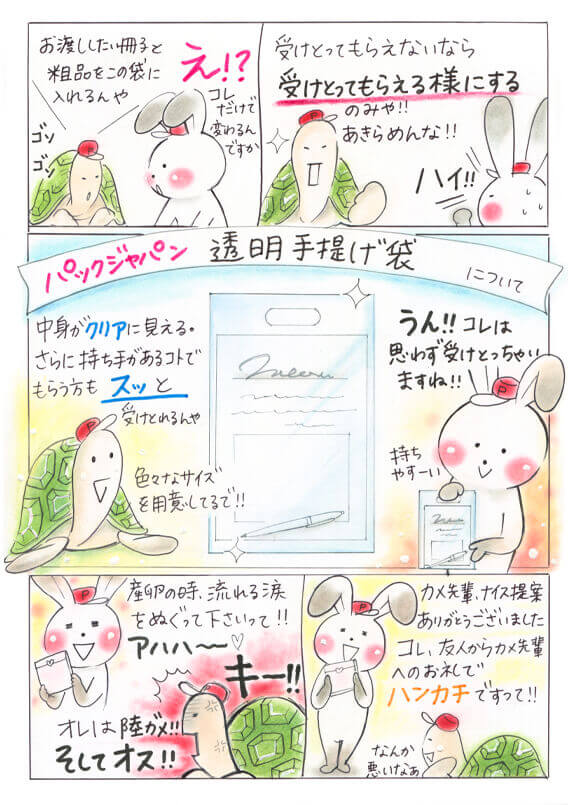 受けとってもらえないなら
受けとってもらえる様にする
のみや!!
あきらめんな!!
ハイ!!
お渡ししたい冊子と
粗品をこの袋に
入れるんや
ゴソ
ゴソ
え!?
コレ
だけで
変わるん
ですか
パックジャパン 透明手提げ袋 について
うん!! コレは
思わず受けとっちゃい
ますね!!
持ち
やすーい
中身がクリアに見える。
さらに持ち手があるコトで
もらう方も スッと
受けとれるんや
色々なサイズ
を用意してるで!!
カメ先輩、ナイス提案
ありがとうございました
コレ、友人からカメ先輩
へのお礼で
ハンカチですって!!
なんか
悪いなぁ
産卵の時、流れる涙
をぬぐって下さいって!!
アハハ〜♡
キー!!
オレは陸ガメ!!
そしてオス!!
P
P
P
P
P
P
P
P
P